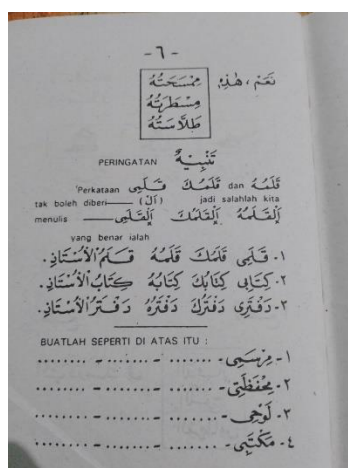 -٦-
نَعَمْ ، هٰذِهِ مِمْسَحَتُهُ
مِسْطَرَتُهُ
طَلَّاسَتُهُ
PERINGATAN تَنْبِيْهٌ
Perkataan قَلَمِى قَلَمُكَ dan قَلَمُهُ
tak boleh diberi (اَلْ) jadi salahlah kita
menulis اَلْقَلَمِى اَلْقَلَمُكَ اَلْقَلَمُهُ
yang benar ialah
١- قَلَمِى قَلَمُكَ قَلَمُهُ قَلَمُ الْأُسْتَاذِ.
٢- كِتَابِى كِتَابُكَ كِتَابُهُ كِتَابُ الْأُسْتَاذِ.
٣- دَفْتَرِى دَفْتَرُكَ دَفْتَرُهُ دَفْتَرُ الْأُسْتَاذِ.
BUATLAH SEPERTI DI ATAS ITU :
١- مِرْسَمِى- ........ - ........ - ........
٢- مِحْفَظَتِى- ........ - ........ - ........
٣- لَوْحِى- ........ - ........ - ........
٤- مَكْتَبِى- ........ - ........ - ........